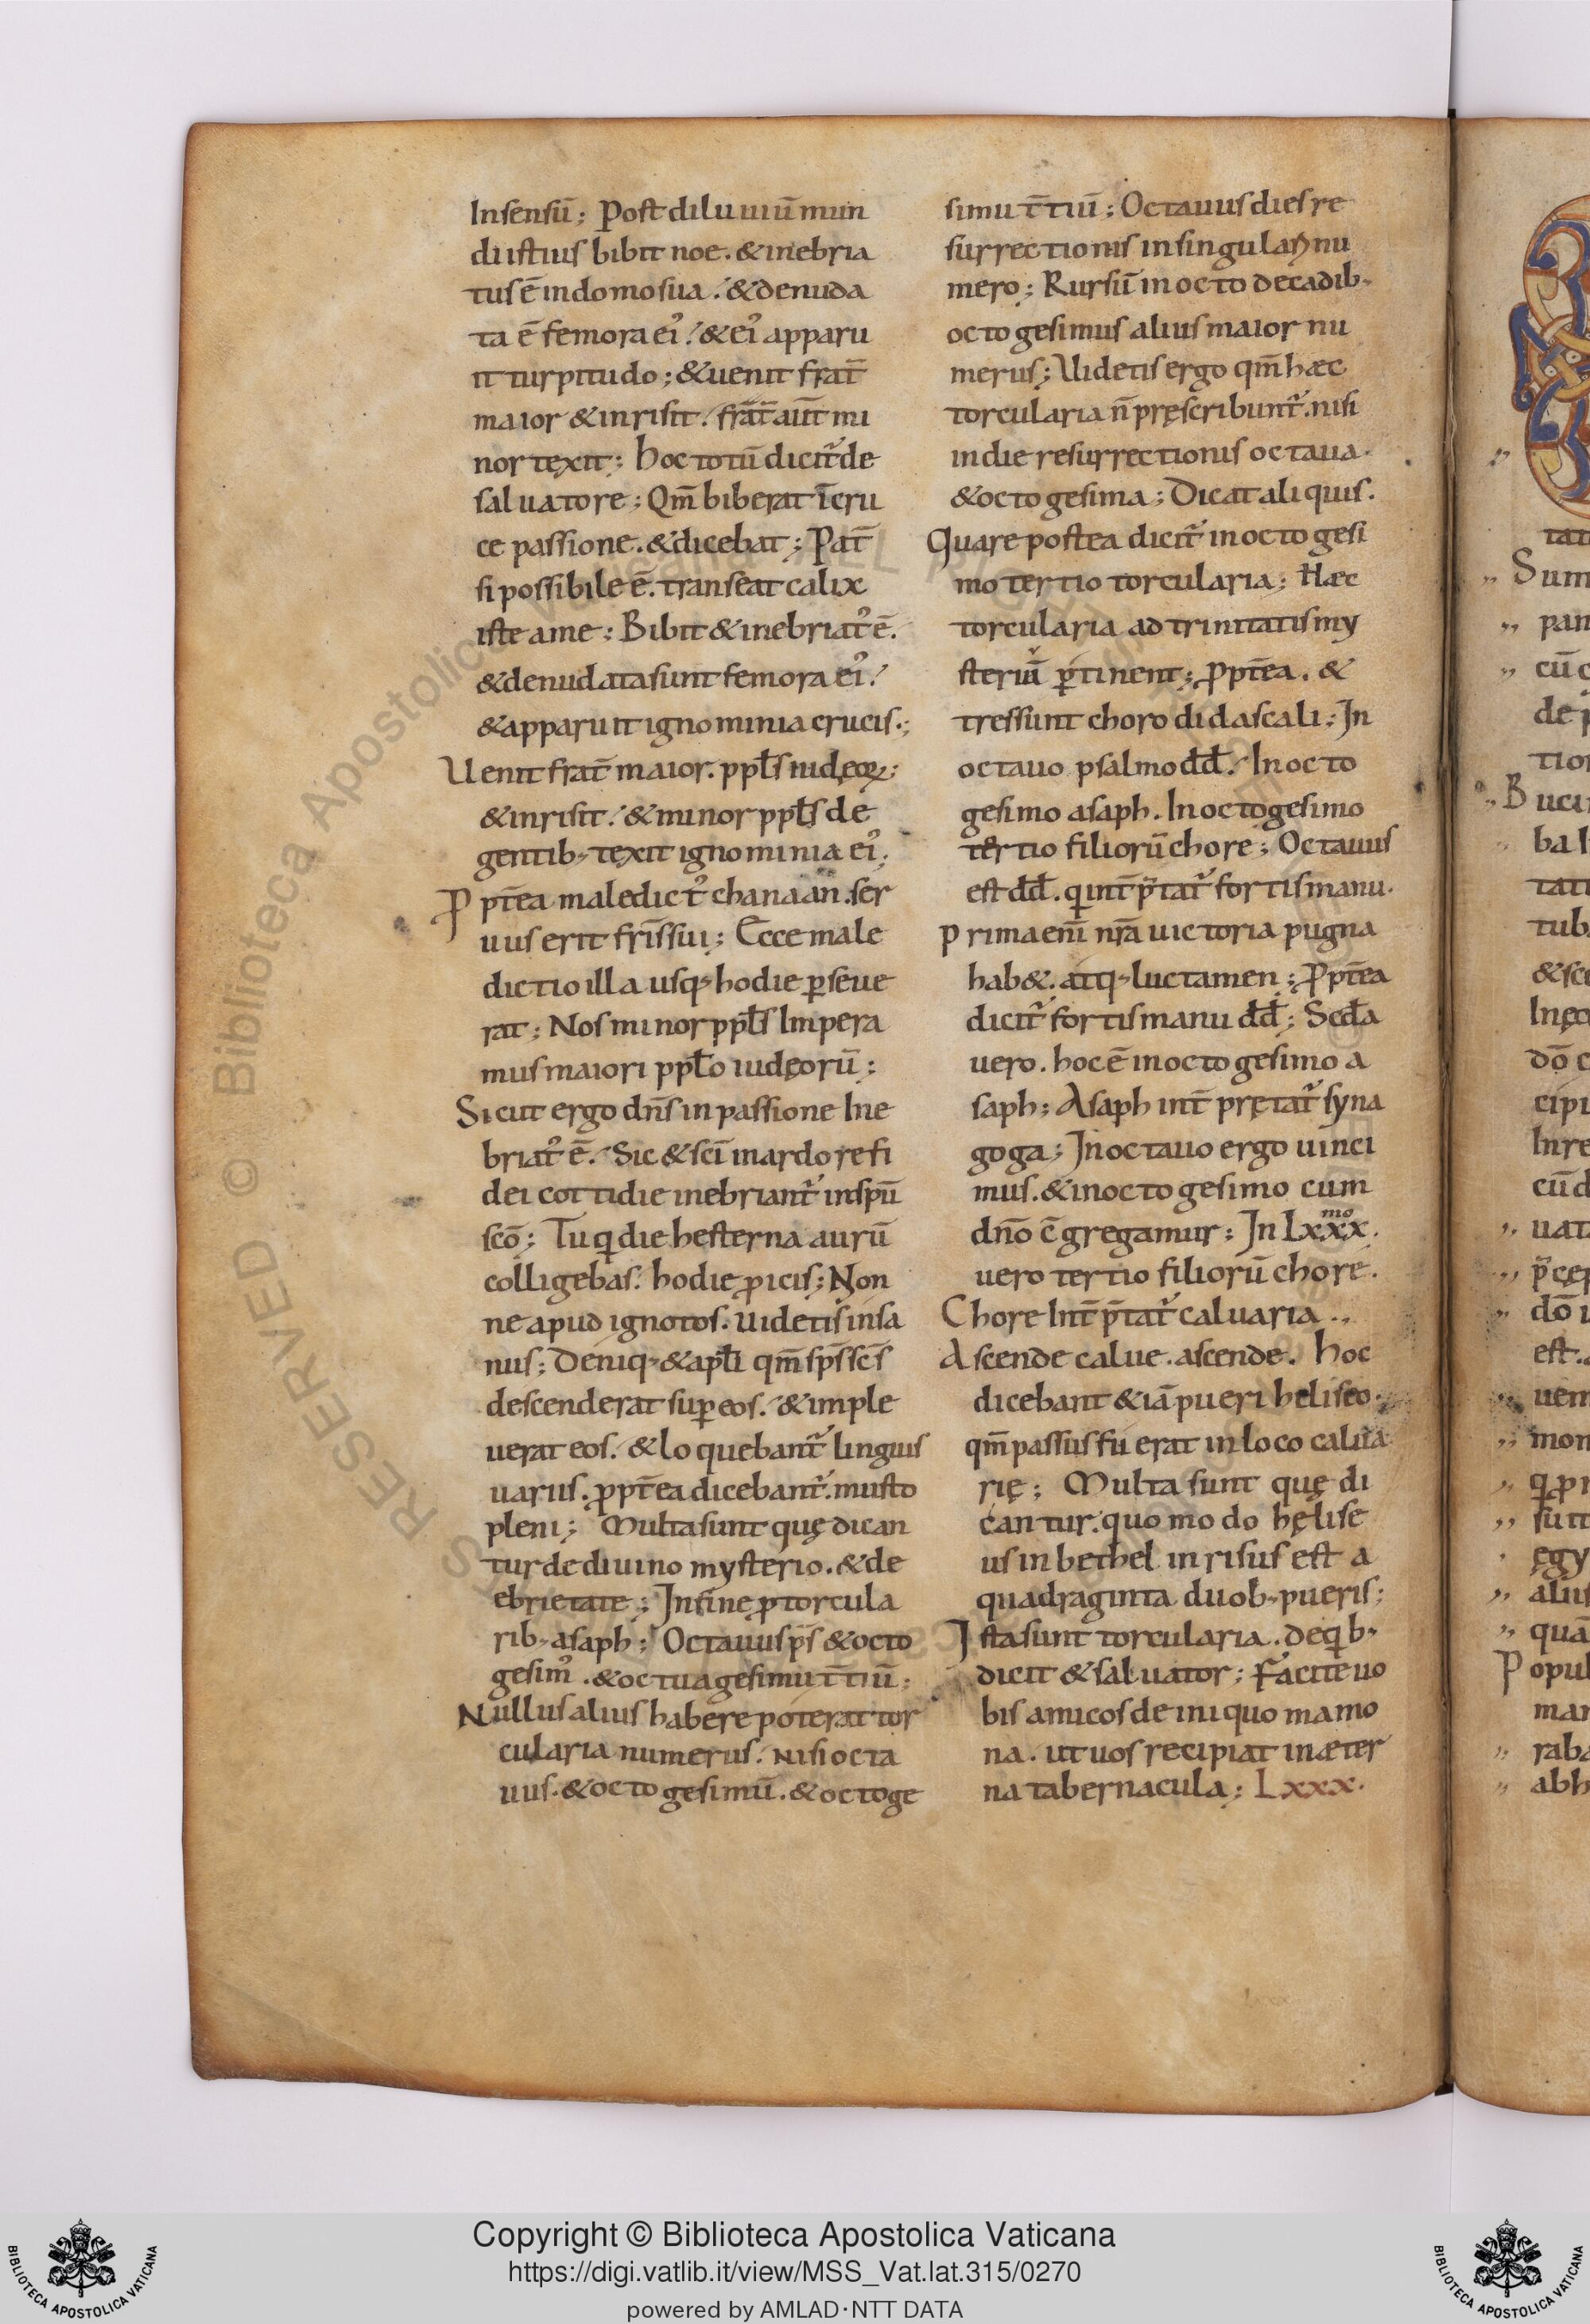 Insensū; Post diluuiū mun
di istius bibit noe. & inebria
tus ē in domo sua. & denuda
ta ē femora ei᾽. & ei᾽ apparu
it turpitudo; & uenit frat̄
maior & inrisit. frāt̄ aut̄ mi
nor texit; hoc totū dicit᷑ de
saluatore; Qm̄ biberat ī cru
ce passione. & dicebat; Pat̄
si possibile ē. transeat calix
iste a me; Bibit & inebriat᾽ ē.
& denudata sunt femora ei᾽.
& apparuit ignominia crucis.;
Uenit frat̄ maior. ppl̄s iudęoꝝ;
& inrisit. & minor ppl̄s de
gentib; texit ignominia ei᾽;
Ꝓpt̄ea maledict᾽ chanaan. ser
uus erit fr̄is sui; Ecce male
dictio illa usq; hodie ꝑseue
rat; Nos minor ppl̄s Impera
mus maiori ppl̄o iudęorū;
Sicut ergo dn̄s in passione Ine
briat᾽ ē. Sic & sc̄i in ardore fi
dei cottidie inebriant᷑ in sp̄u
sc̄o; Tu q̇ die hesterna aurū
colligebas. hodie ꝓicis; Non
ne apud ignotos. uidetis insa
nus; Deniq; & apl̄i qm̄ sp̄s sc̄s
descenderat suꝑ eos. & imple
uerat eos. & loquebant᷑ linguis
uariis. ꝓpt̄ea dicebant᷑. musto
pleni; Multa sunt quę dican
tur de diuino mysterio. & de
ebrietate; In fine ꝓ torcula
rib; asaph; Octauus p̄s & octo
gesim᾽. & octuagesimu t̄tiū;
Nullus alius habere poterat tor
cularia numerus. nisi octa
uus. & octogesimū. & octoge
simu t̄tiū; Octauus dies re
surrectionis in singulaꝝ nu
mero; Rursū in octo decadib;
octogesimus alius maior nu
merus; Uidetis ergo qm̄ hæc
torcularia n̄ pręscribunt᷑. nisi
in die resurrectionis octaua.
& octogesima; Dicat aliquis.
Quare postea dicit᷑ in octogesi
mo tertio torcularia; Hæc
torcularia ad trinitatis my
steriū ꝑtinent; Ꝓpt̄ea. &
tres sunt choro didascali; In
octauo psalmo dd̄. In octo
gesimo asaph. In octogesimo
tertio filiorū chore; Octauus
est dd̄. q̇ int̄p̄tat᷑ fortis manu.
Prima eni nr̄a uictoria pugna
hab&. atq; luctamen; Ꝓpt̄ea
dicit᷑ fortis manu dd̄; Scd̄a
uero. hoc ē in octogesimo a
saph; Asaph int̄pretat᷑ syna
goga; In octauo ergo uinci
mus. & in octogesimo cum
dn̄o c̄gregamur; In Lxxxmo.
uero tertio filiorū chore.
Chore Int̄p̄tat᷑ caluaria.,
Ascende calue. ascende. hoc
dicebant & iā pueri heliseo.
qm̄ passus fuerat in loco calua
rię; Multa sunt quę di
cantur. quomodo hęlise
us in bethel inrisus est a
quadraginta duob; pueris;
Ista sunt torcularia. de q̇b;
dicit & saluator; Facite uo
bis amicos de iniquo mamo
na. ut uos recipiat in æter
na tabernacula; Lxxx.
Sum
Copyright © Biblioteca Apostolica Vaticana
https://digi.vatlib.it/view/MSS_Vat.lat.315/0270
powered by AMLAD·NTT DATA
BIBLIOTECA APOSTOLICA VATICANA
BIBLIOTECA APOSTOLICA VATICANA